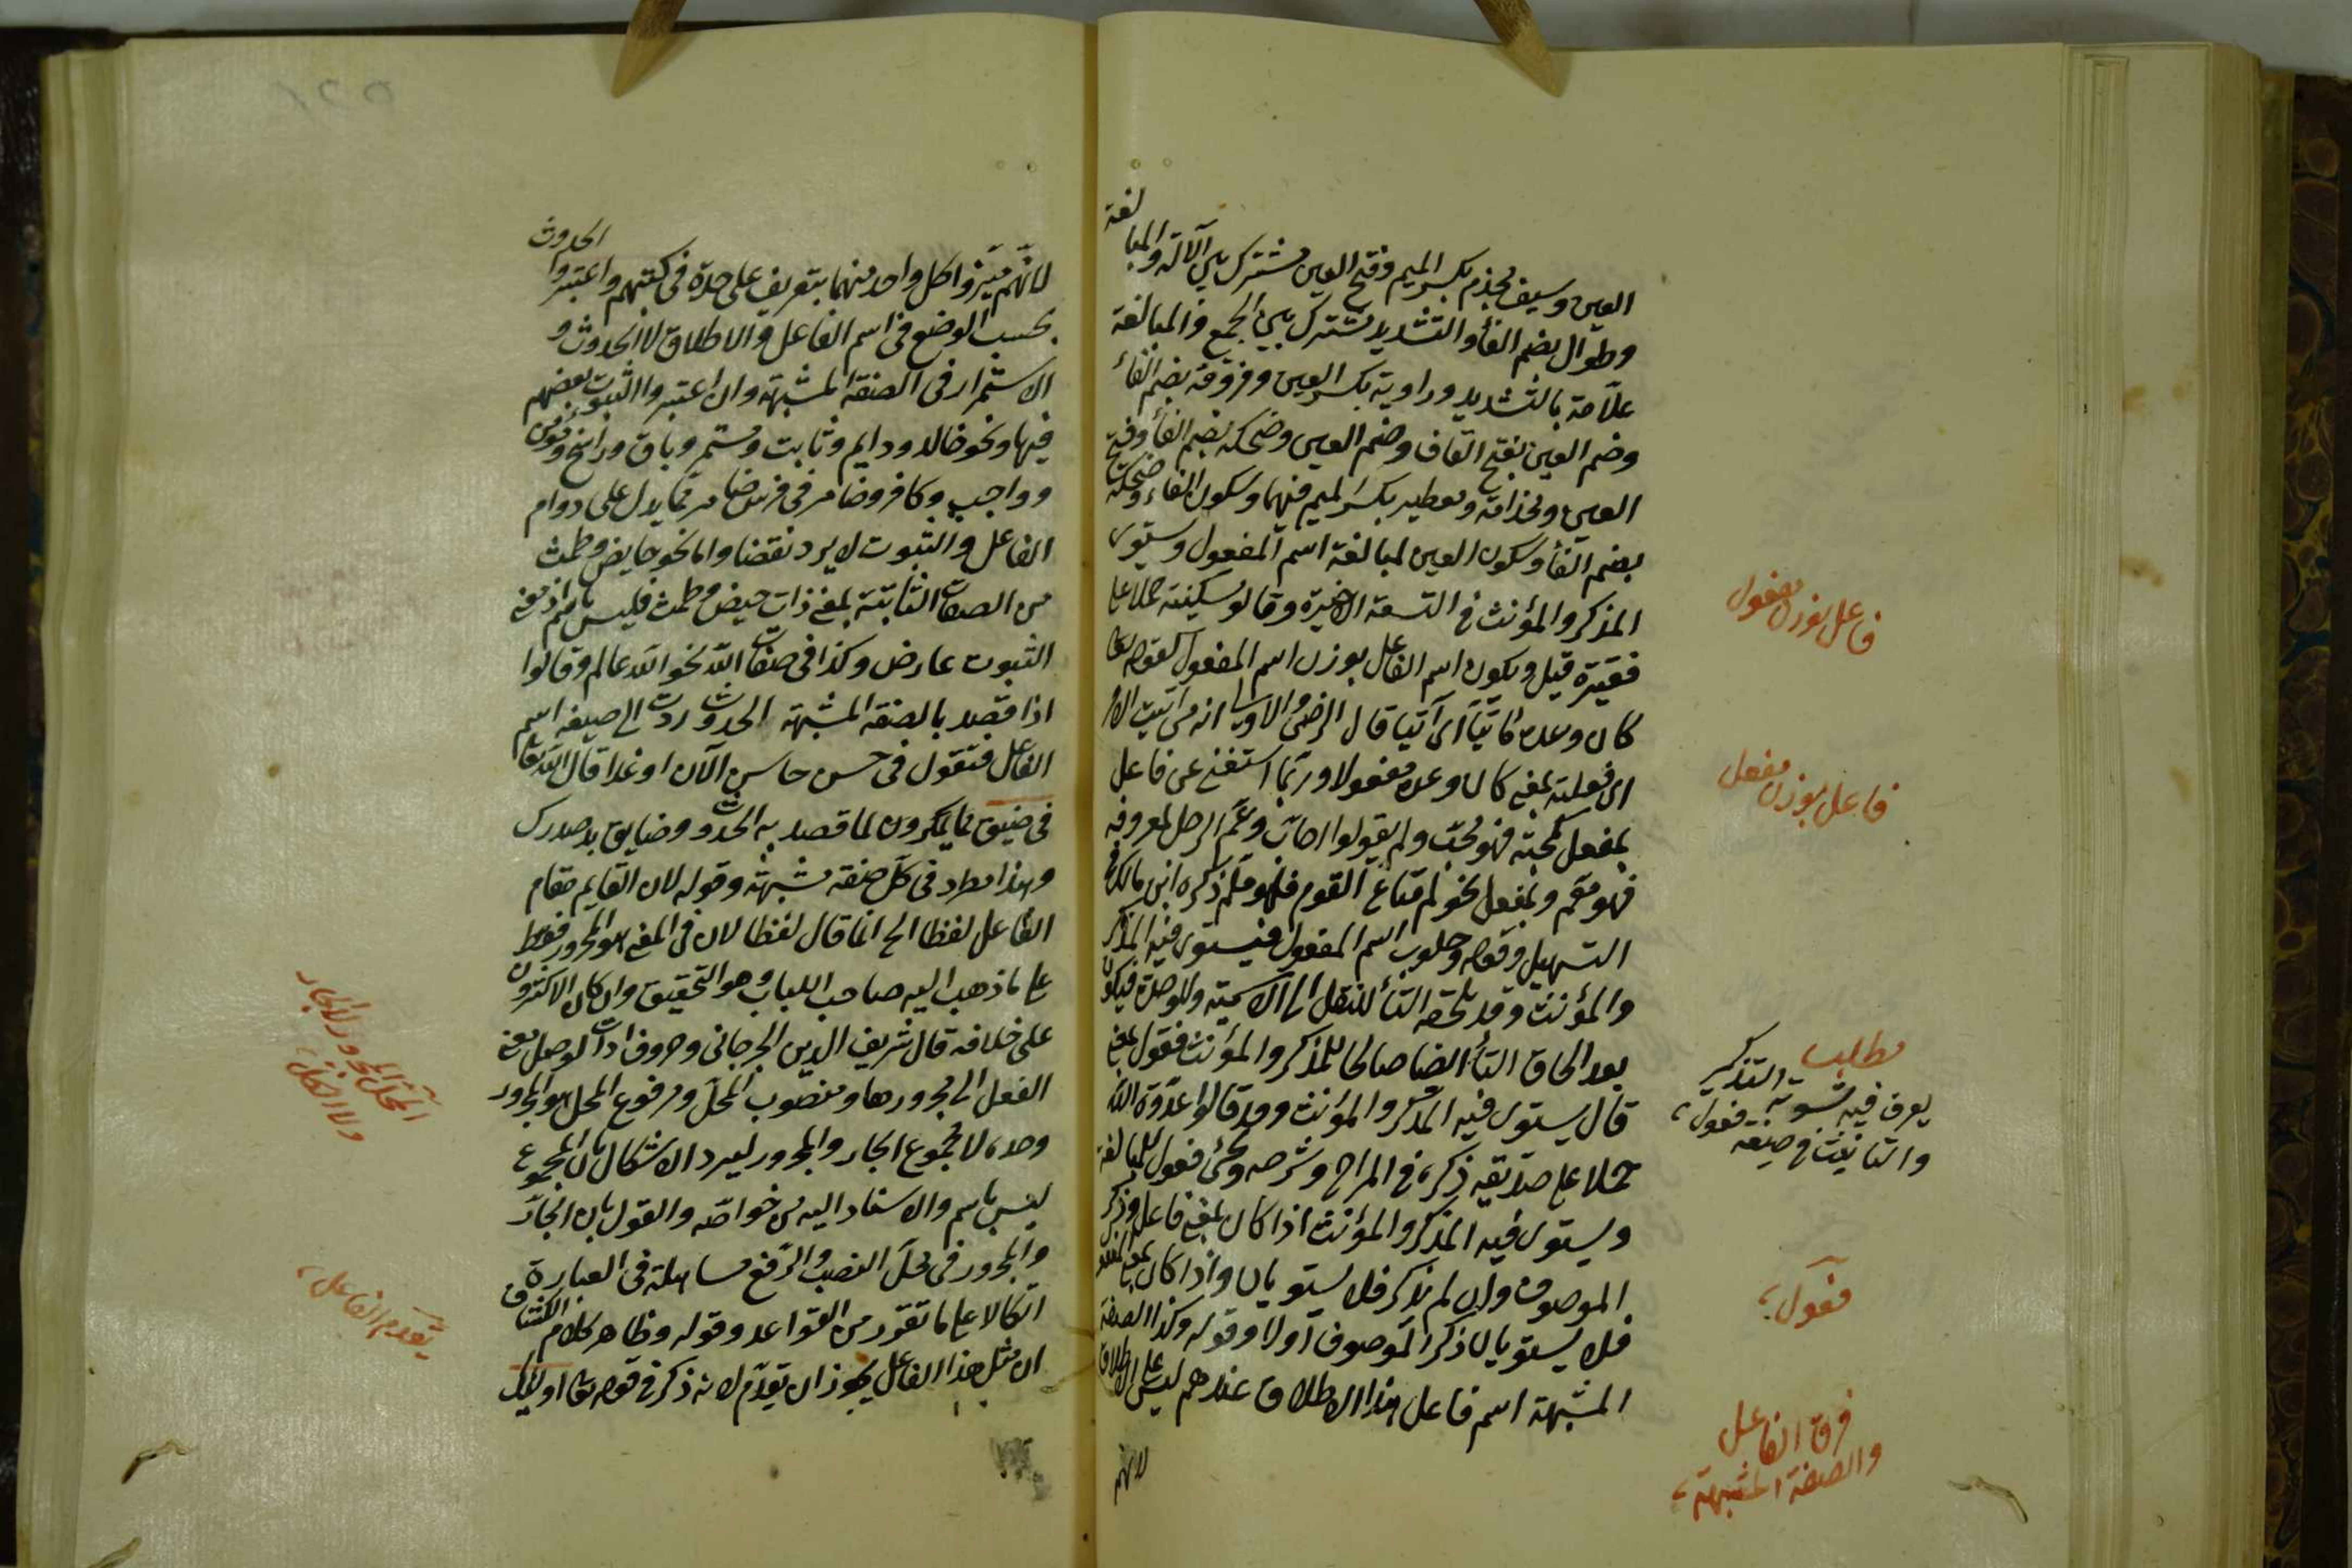 العين وسيف مجذم بكسر الميم وفتح العين مشترك بين الآلة والمبالغة
وطوال بضم الفأ والتشديد مشترك بين الجمع والمبالغة
علامة بالتشديد وراوية بكسر العين وفروقة بضم الفأ
وضم العين بفتح القاف وضم العين وضحكة بضم الفأ وفتح
العين ومجذامة ومعطير بكسر الميم فيهما وسكون الفاء وضحكة
بضم الفأ وسكون العين لمبالغة اسم المفعول ويستوى
المذكر والمؤنث فى التسعة الاخيرة وقالوا مسكينة حملا على
فقيرة قيل ويكون اسم الفاعل بوزن اسم المفعول كقوله تعا
كان وعده مأتيا اى آتيا قال الرضى والاولى انه من اتيت الامر
اى فعلته بمعنى كان وعده مفعولا وربما استغنى عن فاعل
بمفعل كحبه فهو محب ولم يقولوا احاب وعم الرجل لمعروفه
فهو معم وبمفعل نحو لم متاع القوم فلهو ملم ذكره ابن مالك فى
التسهيل وقوله وحلوب اسم المفعول فيستوى فيه المذكر
والمؤنث وقد يلحقه التأ للنقل الى الاسمية وللوحدة فيكون
بعد الحاق التأ ايضا صالحا للمذكر والمؤنث ففعول بمعنى
قال يستوى فيه المذكر والمؤنث وقد قالوا عدوة الله
حملا على صديقة ذكره فى المراح وشرحه ويجئ فعول للمبالغة
ويستوى فيه المذكر والمؤنث اذا كان بمعنى فاعل وذكر
الموصوف وان لم يذكر فلا يستويان واذا كان بمعنى مفعول
فلا يستويان ذكر الموصوف اولا وقوله وكذا الصفة
المشبهة اسم فاعل هذا الاطلاق عندهم ليس على الاطلاق
لانهم
فاعل بوزن مفعول
فاعل بوزن مفعل
مطلب
يعرف فيه تسوية التذكير
والتانيث فى صيغة فعول
فعول
فرق الفاعل
والصفة المشبهة
لانهم ميزوا كل واحد منهما بتعريف على حدة فى كتبهم واعتبروا الحدوث
بحسب الوضع فى اسم الفاعل والاطلاق لا الحدوث و
الاستمرار فى الصفة المشبهة وان اعتبروا الثبوت بعضهم
فيها ونحو خالد ودايم وثابت ومستمر وباق وراسخ ومؤمن
وواجب وكافر وضامر فى فرس ضامر مما يدل على دوام
الفاعل والثبوت لا يرد نقضا واما نحو حايض وطمث
من الصفات الثابتة بمعنى ذات حيض وطمث فليس باسم اذ معنى
الثبوت عارض وكذا فى صفات الله نحو الله عالم وقالوا
اذا قصد بالصفة المشبهة الحدوث ردت الى صيغة اسم
الفاعل فتقول فى حسن حاسن الآن او غدا قال الله تعا
فى ضيق مما يمكرون لما قصد به الحدوث وضايق به صدرك
وهذا مطرد فى كل صفة مشبهة وقوله لان القايم مقام
الفاعل لفظا الخ انما قال لفظا لان فى المعنى هو المجرور فقط
على ما ذهب اليه صاحب اللباب وهو التحقيق وان كان الاكثرون
على خلافه قال شريف الدين الجرجانى وحروف ادات لوصل معنى
الفعل الى مجرورها ومنصوب المحل ومرفوع المحل هو المجرور
وحده لا مجموع الجار والمجرور ليرد الاشكال بان المجموع
ليس باسم والاسناد اليه من خواصه والقول بان الجار
والمجرور فى محل النصب والرفع مساهلة فى العبارة
اتكالا على ما تقرر من القواعد وقوله وظاهر كلام الكشاف
ان مثل هذا الفاعل يجوز ان يقدم لانه ذكر فى قوله تعا اولئك
المحل للمجرور لا للجار
ولا للكل
تقدم الفاعل